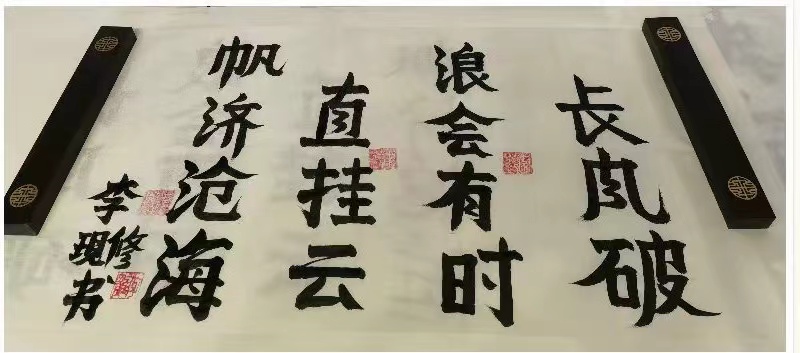 长风破
浪会有时
直挂云
帆济沧海
李修
现书